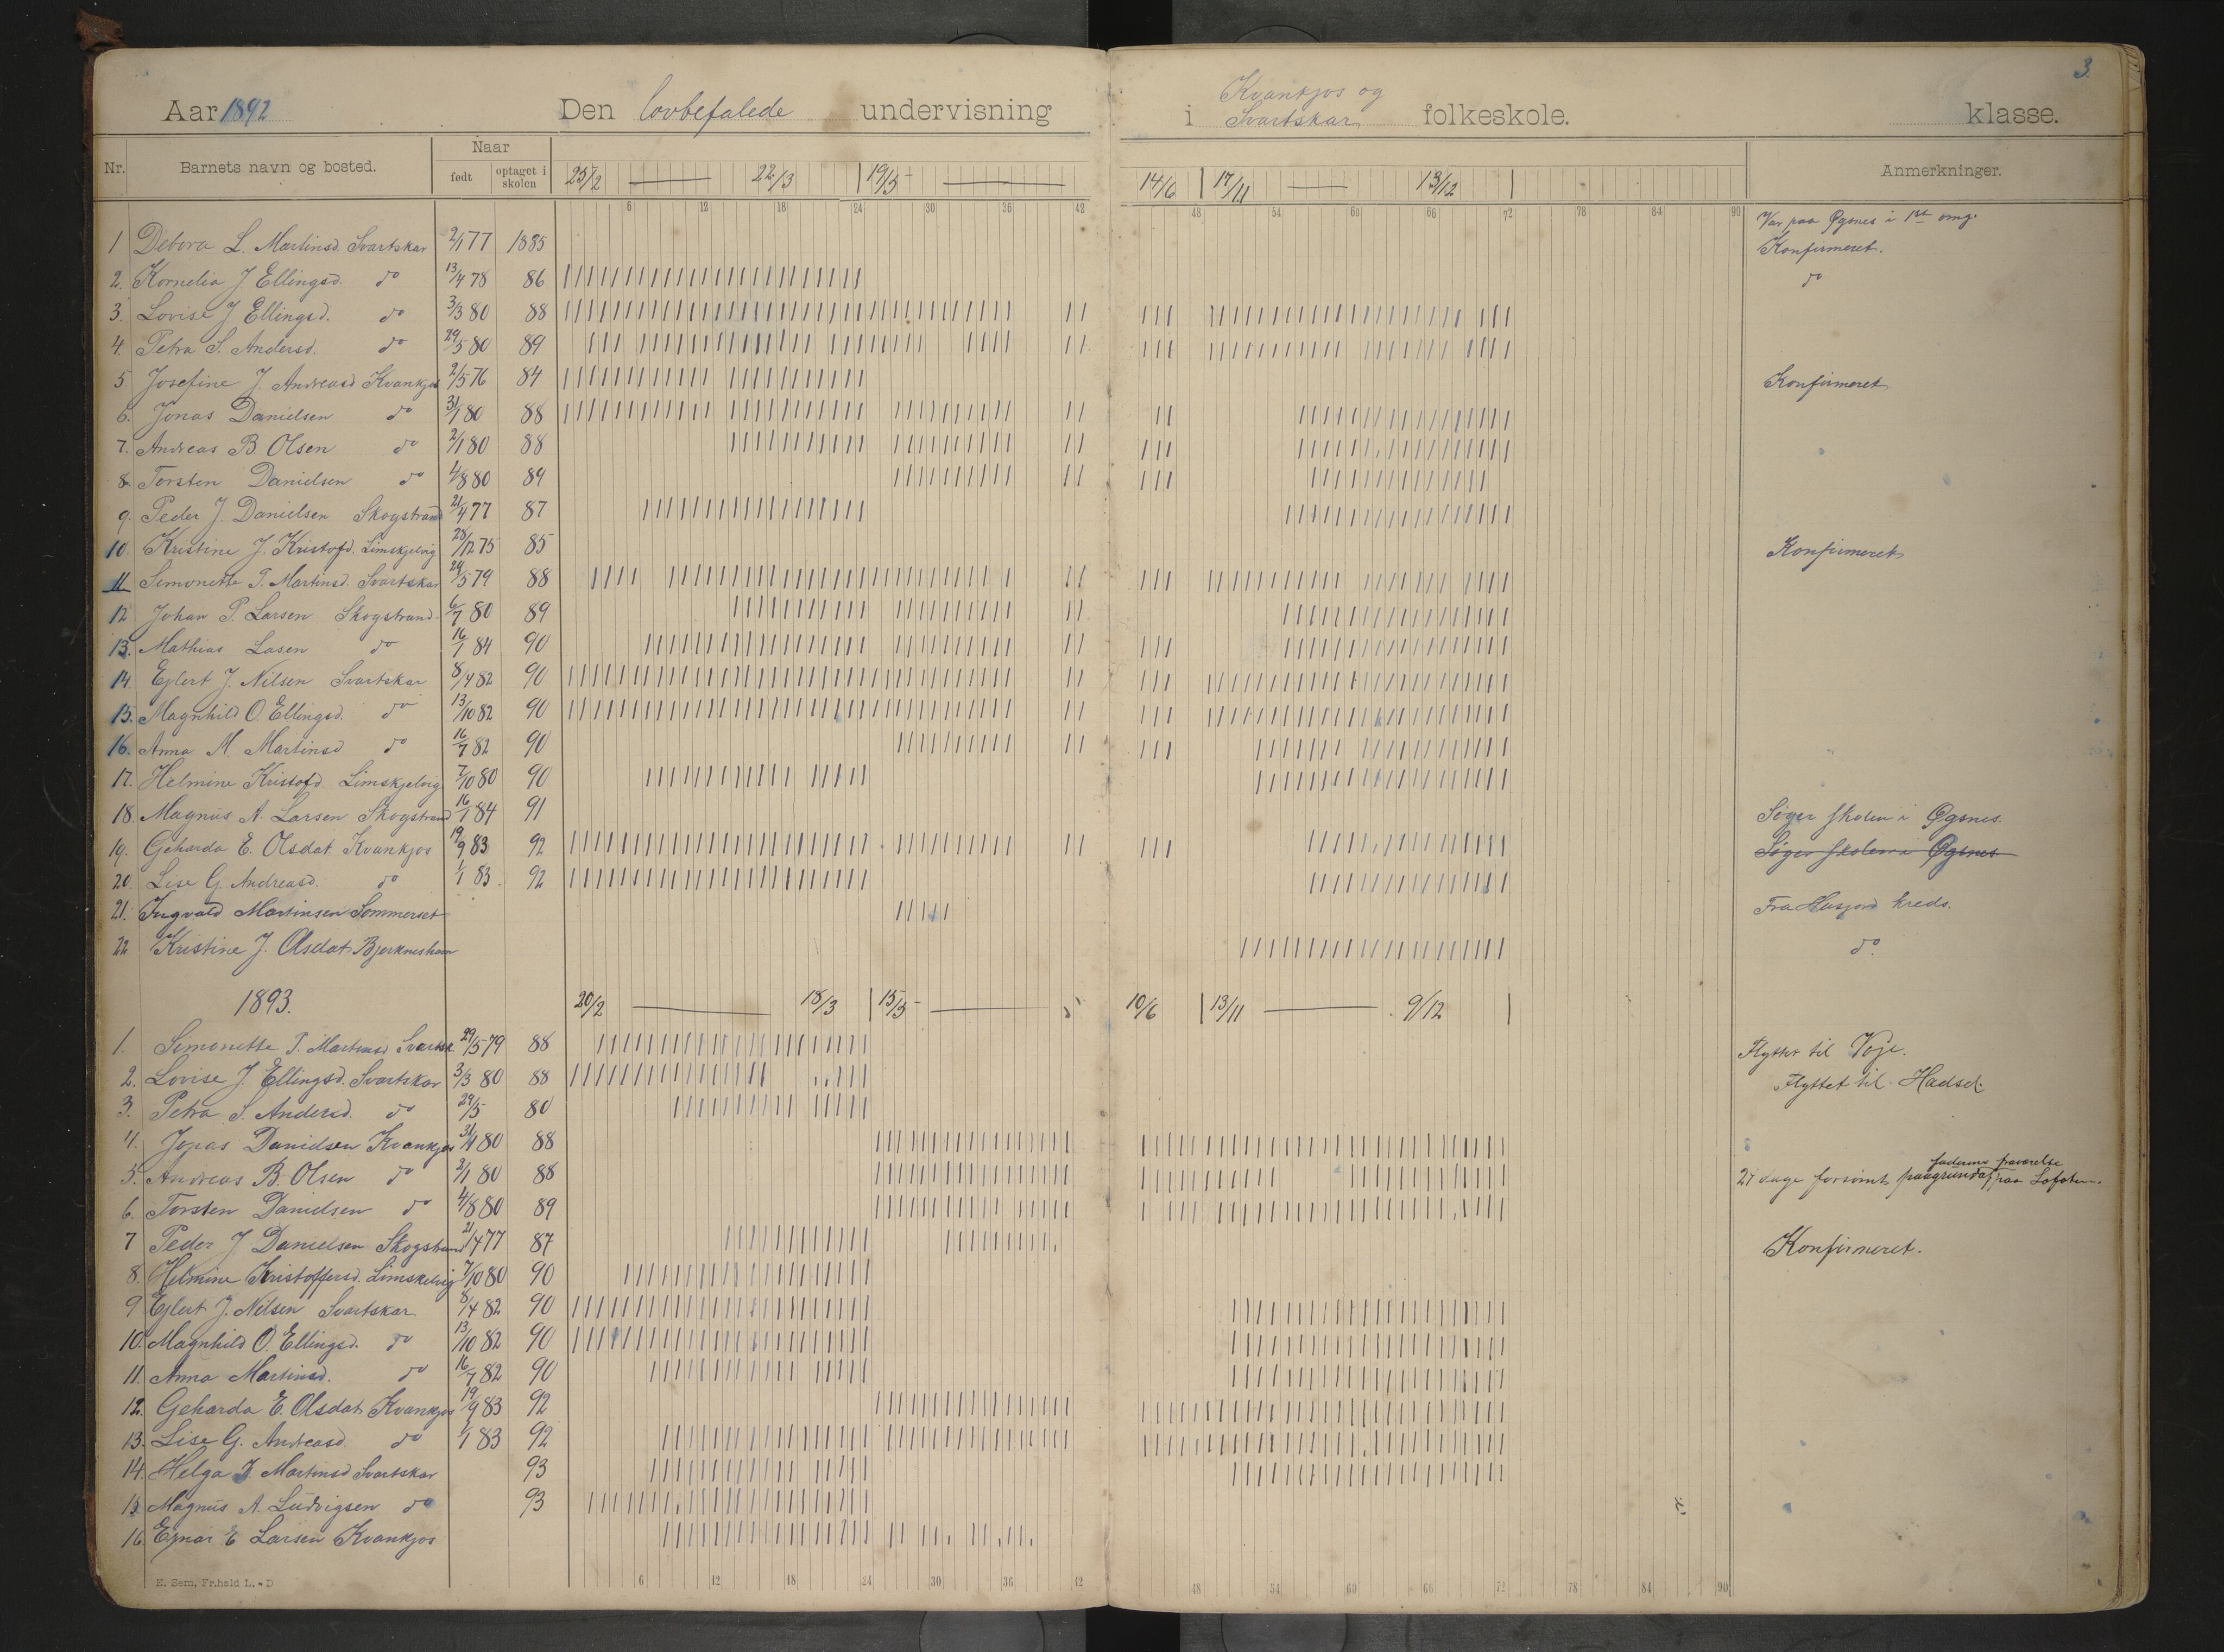 3.
Aar 1892 Den lovbefalede undervisning i Kvankjos og Svartskar folkeskole. klasse.
Nr. Barnets navn og bosted. Naar født optaget i skolen 25/2 — 22/3 19/5 — 14/6 17/11 — 13/12 Anmerkninger.
6 12 18 24 30 36 42 48 54 60 66 72 78 84 90
Var paa Øgsnes i 1st omg.
1 Debora L. Martinsd. Svartskar 2/1 77 1885 Konfirmeret.
2. Kornelia J Ellingsd. do 13/4 78 86 do
3. Lovise J Ellingsd. do 3/3 80 88
4. Petra S. Andersd. do 29/5 80 89
5. Josefine J. Andreasd Kvankjos 2/5 76 84 Konfirmeret
6. Jonas Danielsen do 31/1 80 88
7. Andreas B Olsen do 2/1 80 88
8. Torsten Danielsen do 4/8 80 89
9. Peder J. Danielsen Skogstrand 21/4 77 87
10. Kristine J. Kristofd. Limskjelvig 28/12 75 85 Konfirmeret
11 Simonette P. Martinsd. Svartskar 29/5 79 88
12 Johan P. Larsen Skogstrand 6/7 80 89
13. Mathias Lasen do 16/1 84 90
14. Ejlert J. Nilsen Svartskar 8/4 82 90
15. Magnhild O. Ellingsd. do 13/10 82 90
16. Anna M. Martinsd do 16/7 82 90
17. Helmine Kristofd. Limskjelvig 7/10 80 90
18. Magnus A. Larsen Skogstrand 16/1 84 91 Søger skolen i Øgsnes.
19. Geharda E. Olsdat. Kvankjos 19/9 83 92 Søger skolen i Øgsnes
20. Lise G. Andreasd. do 1/1 83. 92
21. Ingvald Martinsen Sommerset Fra Husjord kreds.
22 Kristine J. Olsdat. Bjerkneshavn do.
1893. 20/2 — 18/3 15/5 — 10/6 13/11 — 9/12
1. Simonette P. Martinsd Svartsk. 29/5 79 88 Flyttet til Voje.
2. Lovise J. Ellingsd. Svartskar 3/3 80 88 Flyttet til Hadsel.
3. Petra S. Andersd. do 29/5 80
4. Jonas Danielsen Kvankjos 31/1 80 88
faderens fraværelse
5. Andreas B. Olsen do 2/1 80 88 21 dage forsømt paagrund af paa Lofoten.
6. Torsten Danielsen do 4/8 80 89
7 Peder J Danielsen Skogstrand 21/4 77 87 Konfirmeret.
8. Helmine Kristoffersd. Limskelvig 7/10 80 90
9 Ejlert J. Nilsen Svartskar 8/4 82 90
10. Magnhild O. Ellingsd. do 13/10 82 90
11. Anna Martinsd. do 16/7 82 90
12. Geharda E. Olsdat. Kvankjos 19/9 83 92
13. Lise G. Andreasd do 1/1 83 92
14. Helga J Martinsd Svartskar 93
15. Magnus A. Ludvigsen do 93
16. Ejnar E Larsen Kvankjos
6 12 18 24 30 36 42 48 54 60 66 72 78 84 90
E. Sem, Fr.hald L. - D